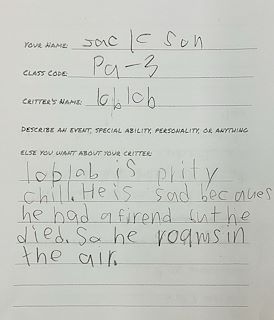 YOUR NAME: jac k son
CLASS CODE: Pa-3
CRITTER'S NAME: loblob
DESCRIBE AN EVENT, SPECIAL ABILITY, PERSONALITY, OR ANYTHING
ELSE YOU WANT ABOUT YOUR CRITTER:
loplab is prity
chill. He is sad becaues
he had a firend cut he
died. So he roams in
the air.